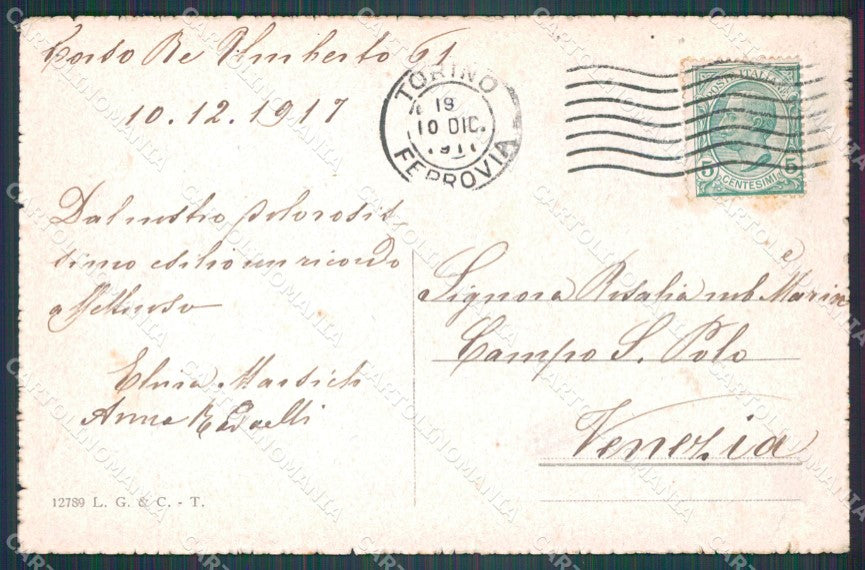 Corso Re Umberto 61
10.12.1917
TORINO
19
10 DIC.
FERROVIA
POSTE ITALIANE
5 5
CENTESIMI
Dal nostro dolorosis
simo esilio un ricordo
affettuoso
Elvira
Anna
Signora Rosalia nob. Marin
Campo S. Polo
Venezia
12789 L. G. & C. - T.
CARTOLINOMANIA